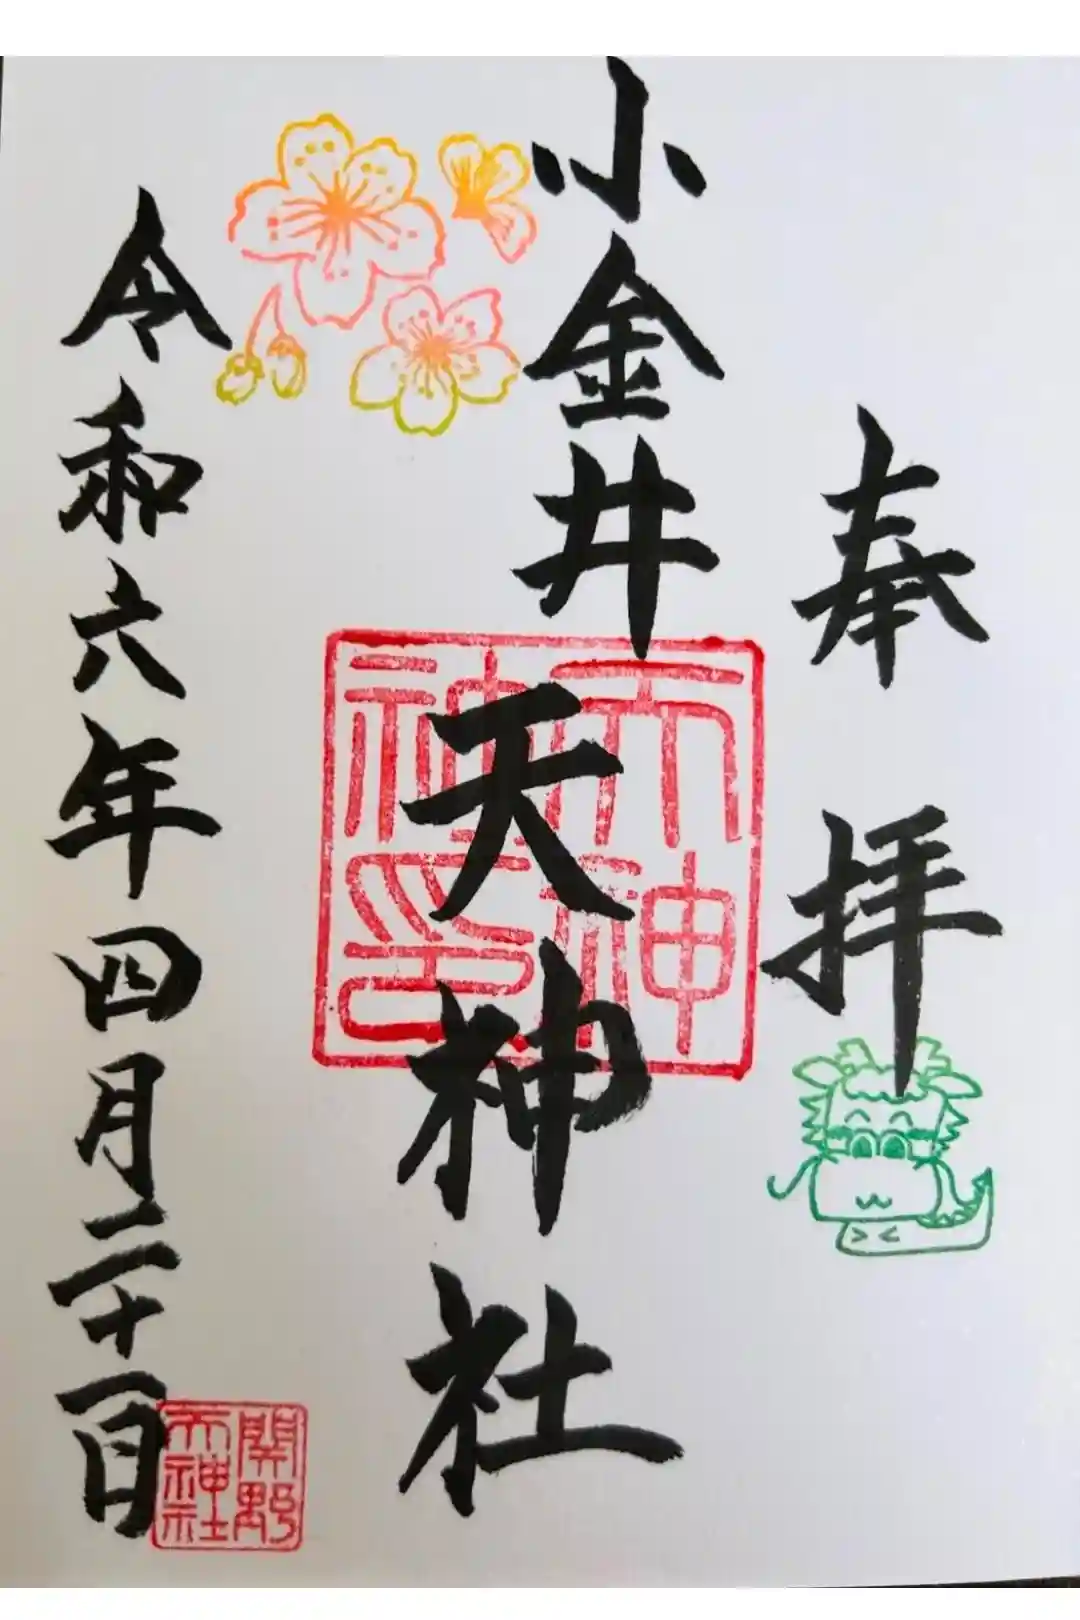 奉拝
小金井
天神社
天神
神印
令和六年四月二十一日
関野
天神社